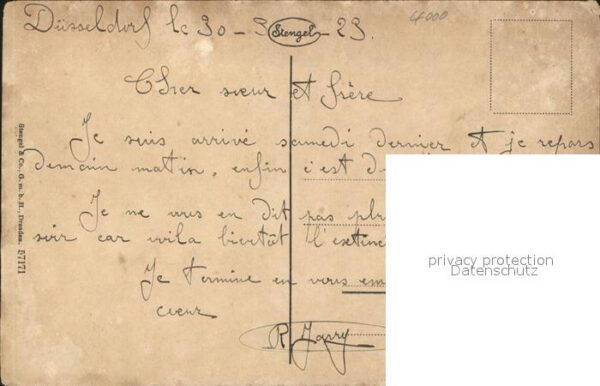 Düsseldorf le 30 - 5 - 23.
Stengel
4000
Cher sœur et frère
Je suis arrivé samedi dernier et je repars
demain matin, enfin c'est
Je ne vous en dit pas
soir car voila bientôt l'
Je termine en vous
cœur
R Jarry
Stengel & Co., G. m. b. H., Dresden. 57171
privacy protection
Datenschutz